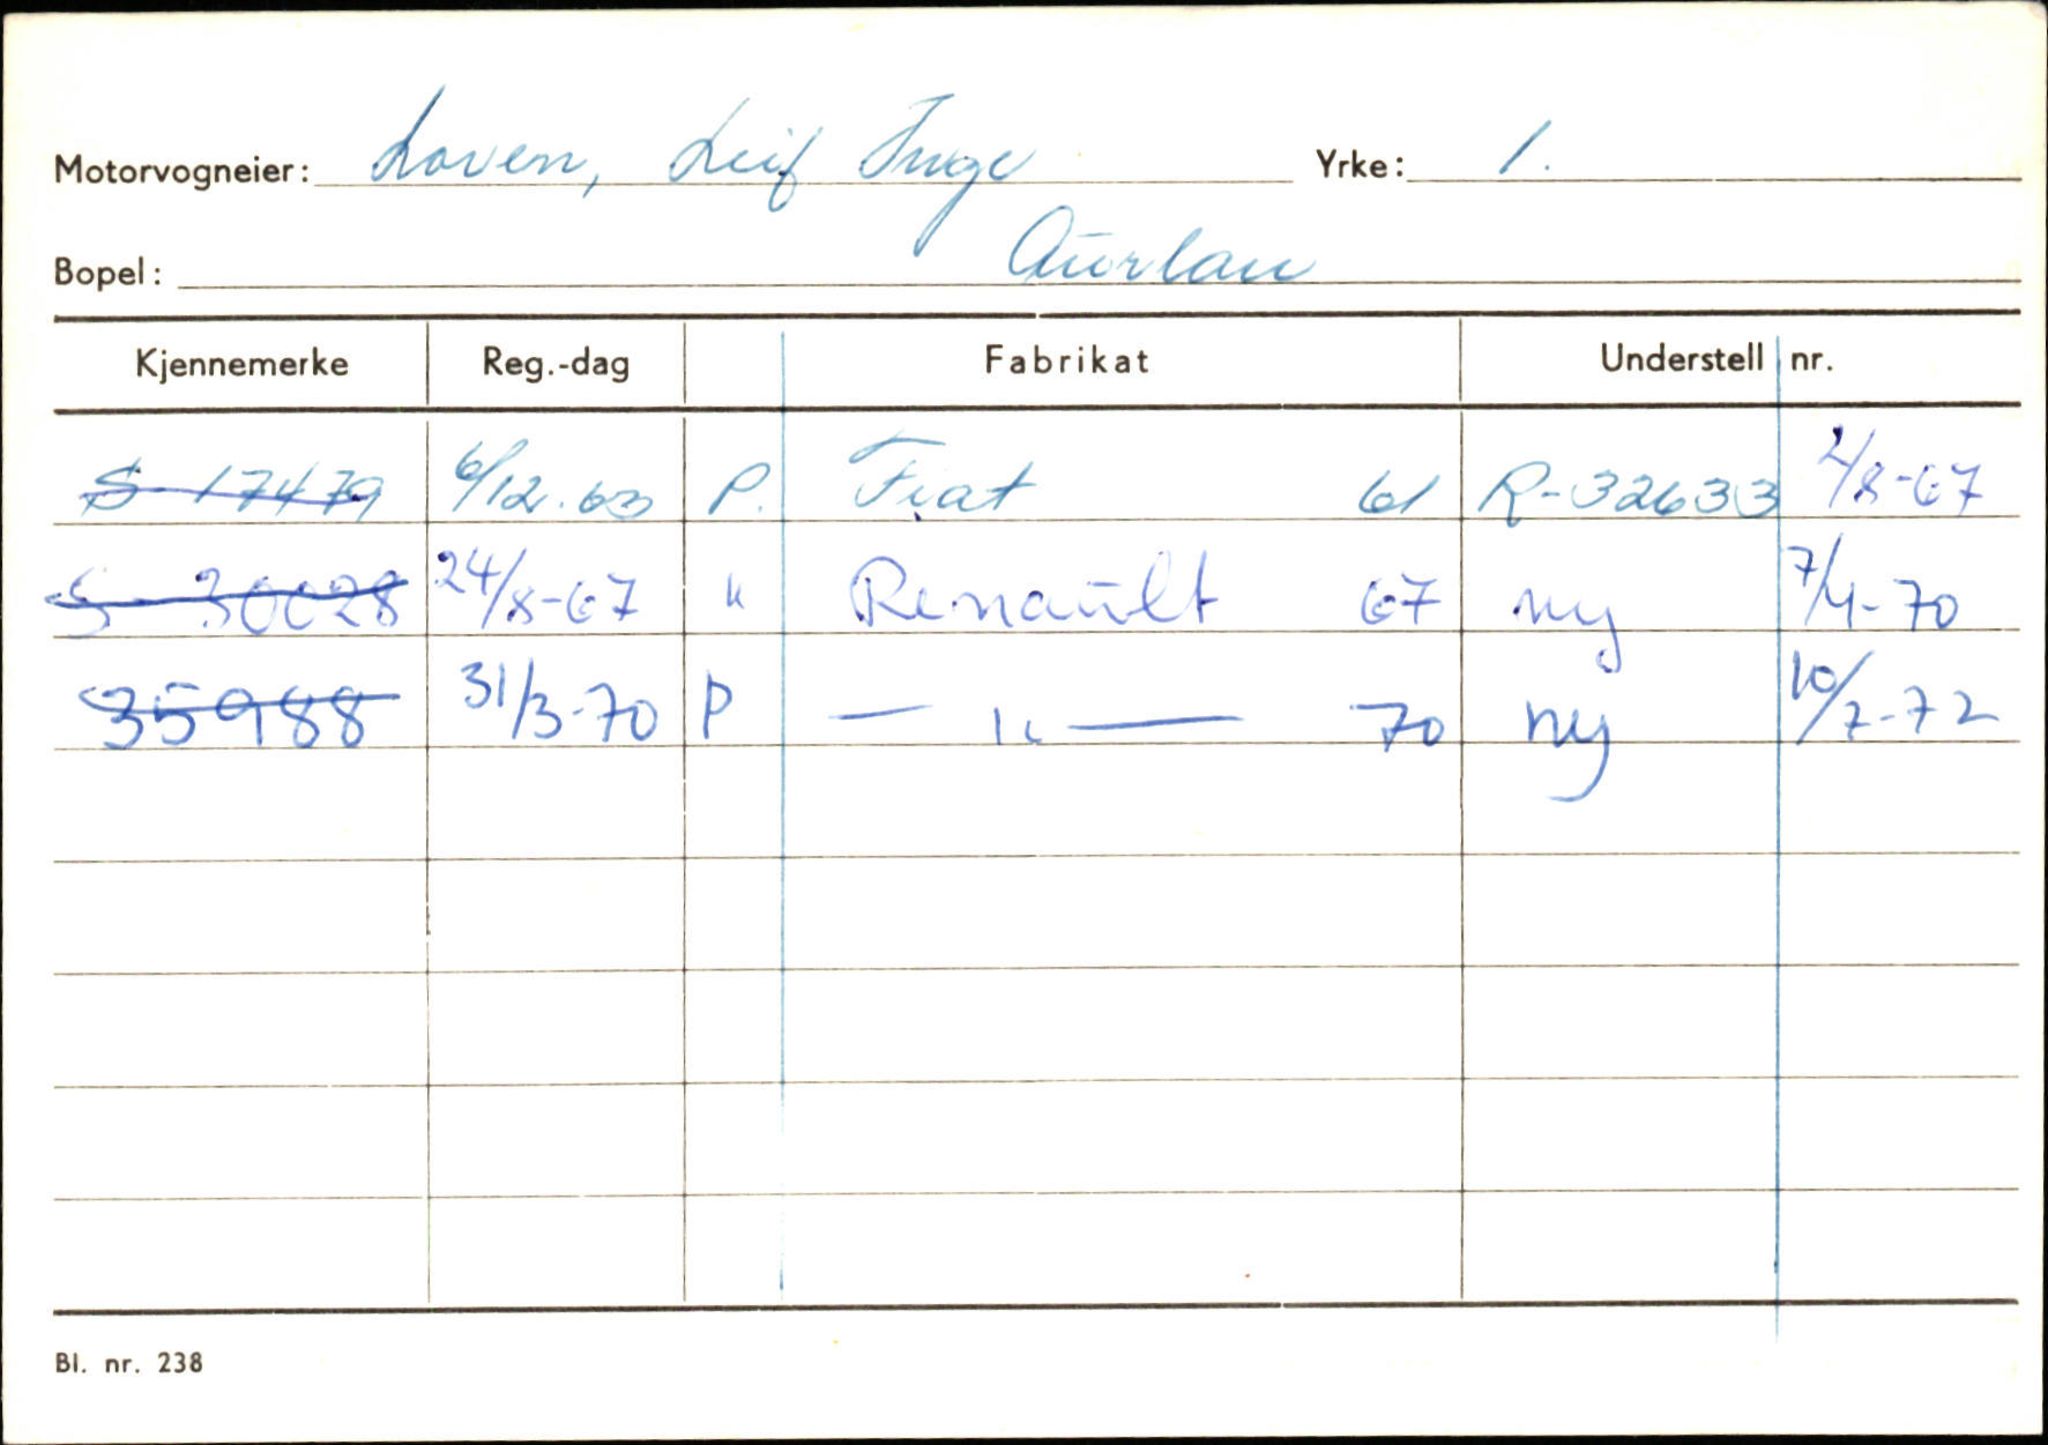 Motorvogneier: Loven, Leif Inge Yrke: 1.
Bopel: Aurlan
Kjennemerke Reg.-dag Fabrikat Understell nr.
S-17479 6/12.63 P. Fiat 61 R-32633 2/8-67
S-30028 24/8-67 " Renault 67 ny 7/4-70
35988 31/3-70 P — " — 70 ny 10/7-72
Bl. nr. 238